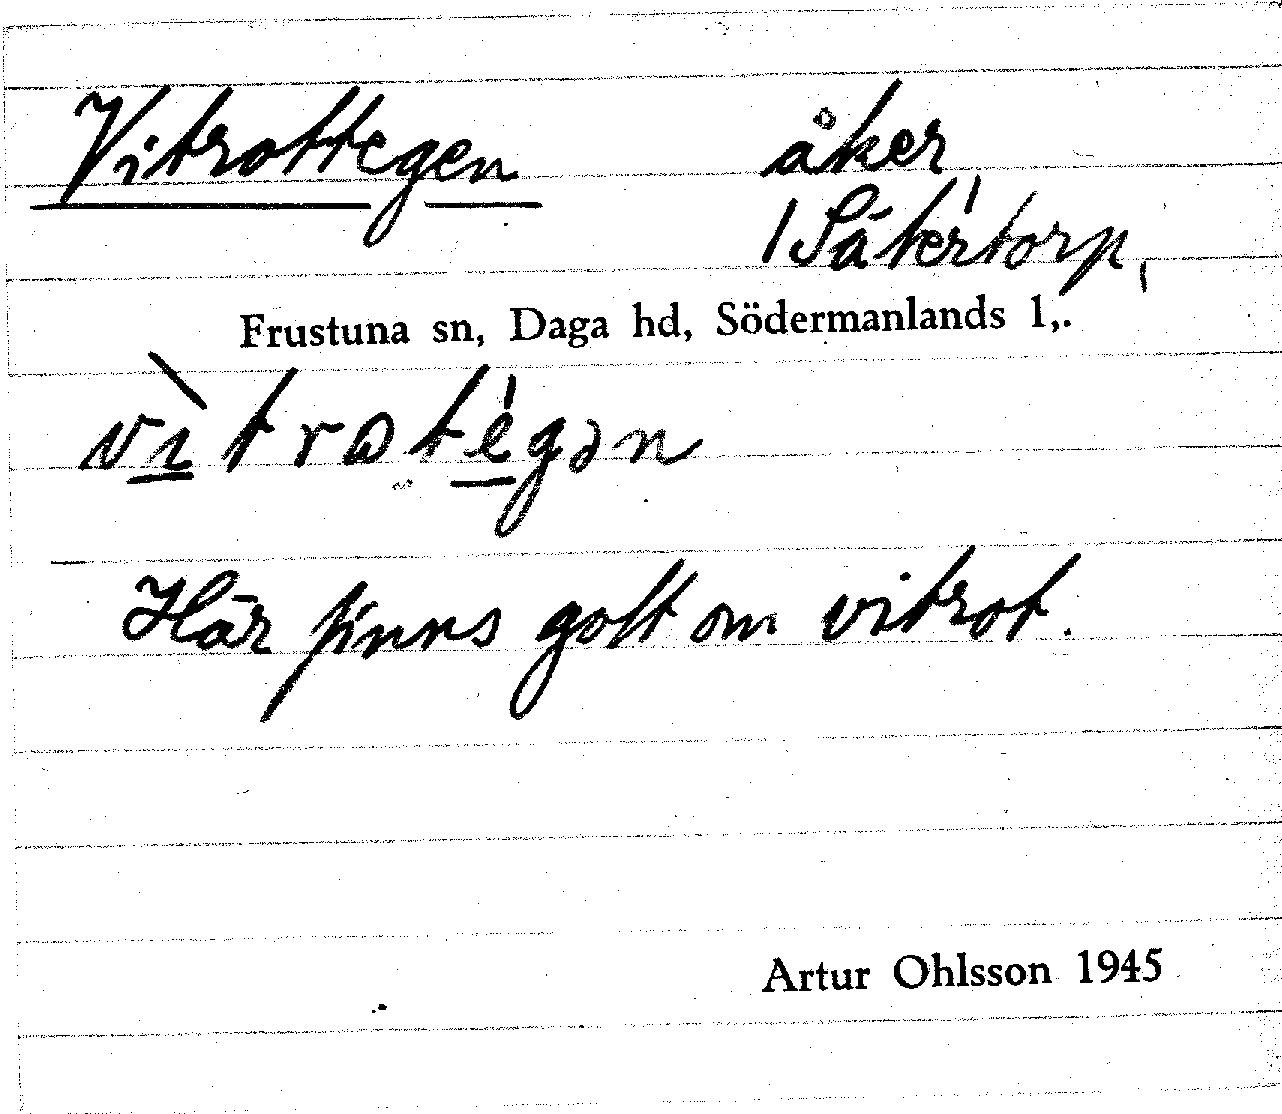 Vitrottegen åker
/ Sätertorp,
Frustuna sn, Daga hd, Södermanlands l,.
vìtrotégən
Här finns gott om vitrot.
Artur Ohlsson 1945